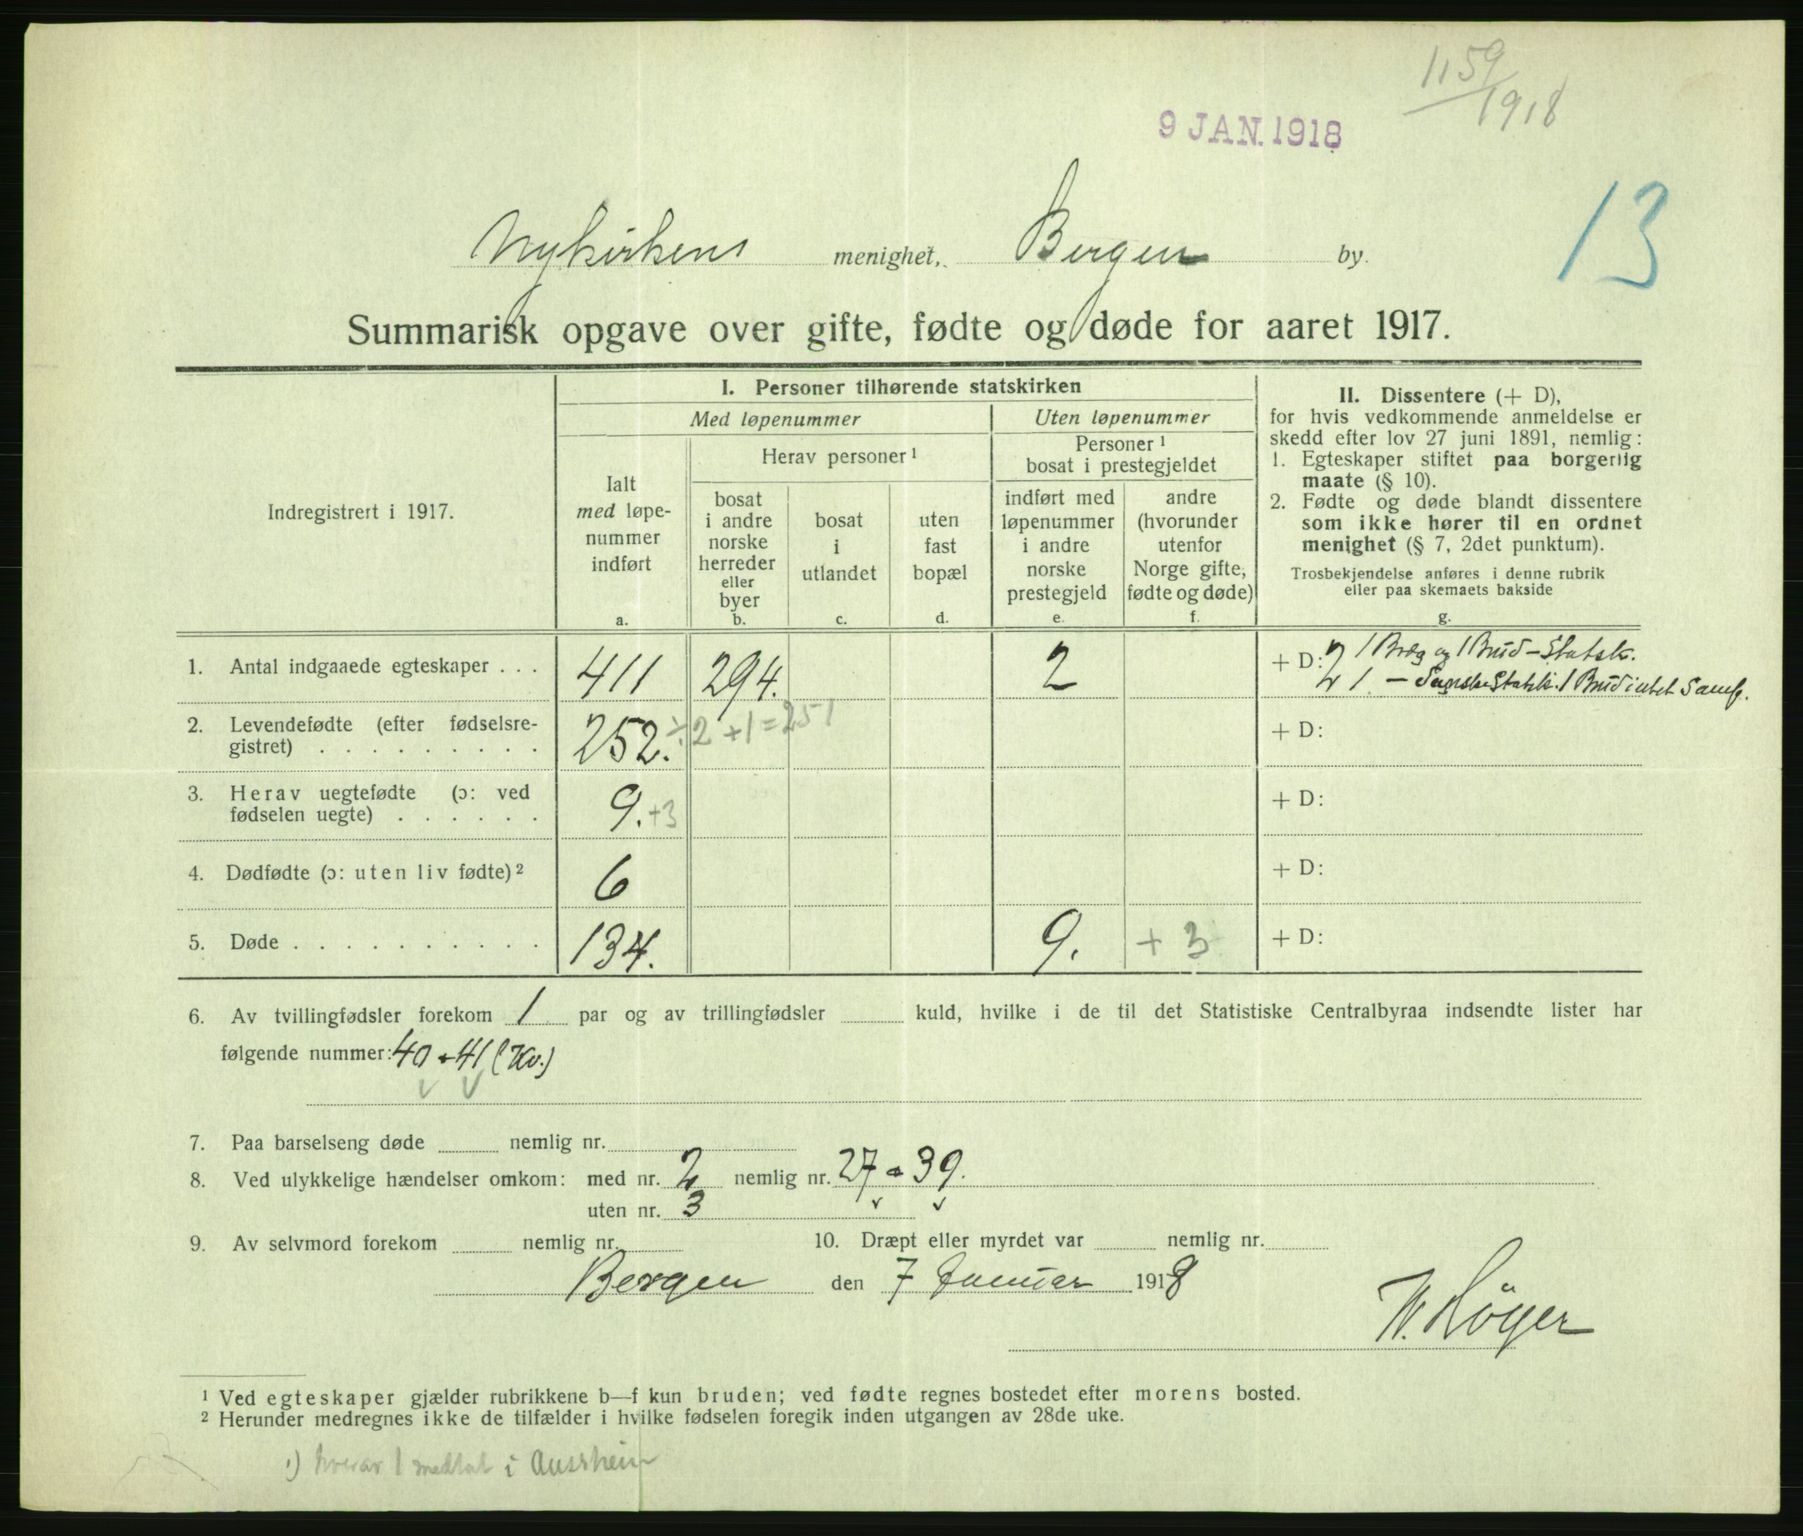 1159
1918
9 JAN. 1918
13
Nykirkens menighet, Bergen by.
Summarisk opgave over gifte, fødte og døde for aaret 1917.
Indregistrert i 1917.
I. Personer tilhørende statskirken
Med løpenummer
Uten løpenummer
Ialt
med løpe-
nummer
indført
a.
Herav personer ¹
bosat
i andre
norske
herreder
eller
byer
b.
bosat
i
utlandet
c.
uten
fast
bopæl
d.
Personer ¹
bosat i prestegjeldet
indført med
løpenummer
i andre
norske
prestegjeld
e.
andre
(hvorunder
utenfor
Norge gifte,
fødte og døde)
f.
II. Dissentere (+ D),
for hvis vedkommende anmeldelse er
skedd efter lov 27 juni 1891, nemlig:
1. Egteskaper stiftet paa borgerlig
maate (§ 10).
2. Fødte og døde blandt dissentere
som ikke hører til en ordnet
menighet (§ 7, 2det punktum).
Trosbekjendelse anføres i denne rubrik
eller paa skemaets bakside
g.
1. Antal indgaaede egteskaper . . . 411 294. 2 + D: 2 1 Brg og 1 Brud - Statsk.
2 1. - Statsk. 1 Brud intet Samf.
2. Levendefødte (efter fødselsre-
gistret) . . . . . . . . . 252. ÷2 +1=251 + D:
3. Herav uegtefødte (ɔ: ved
fødselen uegte) . . . . . . 9. +3 + D:
4. Dødfødte (ɔ: uten liv fødte) ² 6 + D:
5. Døde . . . . . . . . . . 134. 9. + 3 + D:
6. Av tvillingfødsler forekom 1 par og av trillingfødsler kuld, hvilke i de til det Statistiske Centralbyraa indsendte lister har
følgende nummer: 40 - 41 (Kv.)
7. Paa barselseng døde nemlig nr.
8. Ved ulykkelige hændelser omkom: med nr. 2 nemlig nr. 27 - 39.
uten nr. 3
9. Av selvmord forekom nemlig nr. 10. Dræpt eller myrdet var nemlig nr.
Bergen den 7 Januar 1918
W. Høyer
¹ Ved egteskaper gjælder rubrikkene b—f kun bruden; ved fødte regnes bostedet efter morens bosted.
² Herunder medregnes ikke de tilfælder i hvilke fødselen foregik inden utgangen av 28de uke.
1) hvorav 1 i